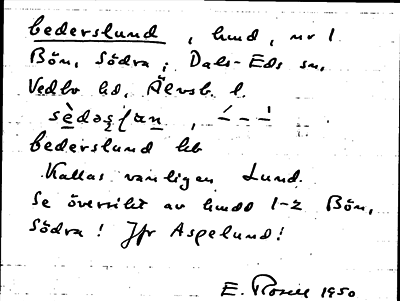 bederslund, hmd, nr 1
Bön, Södra, Dals-Eds sn,
Vedbo hd, Älvsb. l.
bederslund hb
Kallas vanligen Lund.
Se översikt av hmdd 1-2 Bön,
Södra! Jfr Aspelund!
E. Rosell 1950